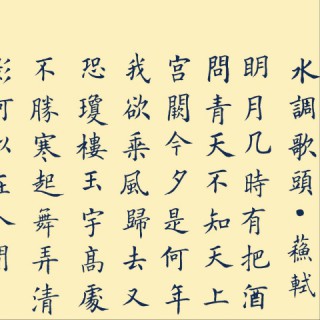 水調歌頭•蘇軾
明月几時有把酒
問青天不知天上
宮闕今夕是何年
我欲乘風歸去又
恐瓊樓玉宇高處
不勝寒起舞弄清
影何似在人間